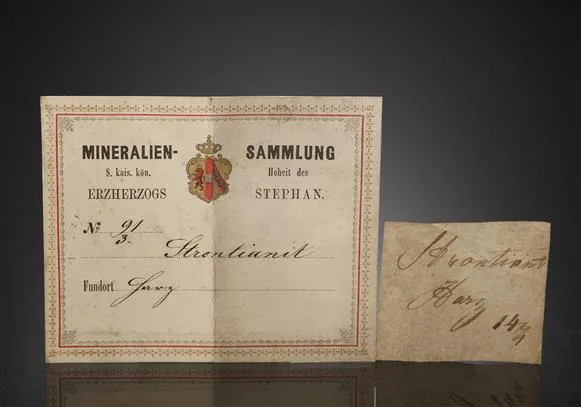 MINERALIEN- SAMMLUNG
S. kais. kön. Hoheit des
ERZHERZOGS STEPHAN.
№ 91/3.
Strontianit
Fundort Harz
Strontianit
Harz